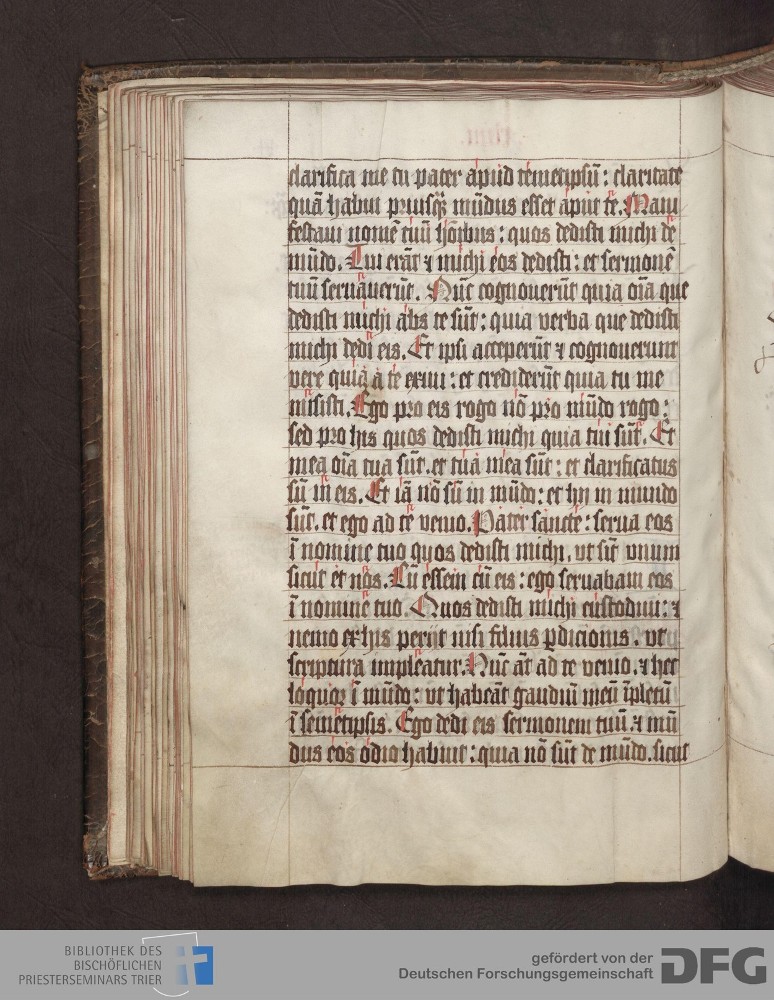 clarifica me tu pater apud temetipsū : claritate
quā habui priusq̄ mūdus esset aput te. Mani
festaui nomē tuū hōibus : quos dedisti michi de
mūdo. Tui erāt ⁊ michi eos dedisti : et sermonē
tuū seruauerūt. Nūc cognouerūt quia oīa que
dedisti michi abs te sūt : quia verba que dedisti
michi dedi eis. Et ipsi acceperūt ⁊ cognouerunt
vere quia a te exiui : et crediderūt quia tu me
misisti. Ego pro eis rogo nō pro mūdo rogo :
sed pro his quos dedisti michi quia tui sūt. Et
mea oīa tua sūt. et tua mea sūt : et clarificatus
sū in eis. Et iā nō sū in mūdo : et hij in mundo
sūt. et ego ad te venio. Pater sancte : serua eos
ī nomine tuo quos dedisti michi. vt sīt vnum
sicut et nos. Cū essem cū eis : ego seruabam eos
ī nomine tuo. Quos dedisti michi custodiui : ⁊
nemo ex his perijt nisi filius ꝑdicionis. vt
scriptura impleatur. Nūc āt ad te venio. ⁊ hec
loquor ī mūdo : vt habeāt gaudiū meū īpletū
ī semetipsis. Ego dedi eis sermonem tuū ⁊ mū
dus eos odio habuit : quia nō sūt de mūdo. sicut
BIBLIOTHEK DES
BISCHÖFLICHEN
PRIESTERSEMINARS TRIER
gefördert von der
Deutschen Forschungsgemeinschaft
DFG